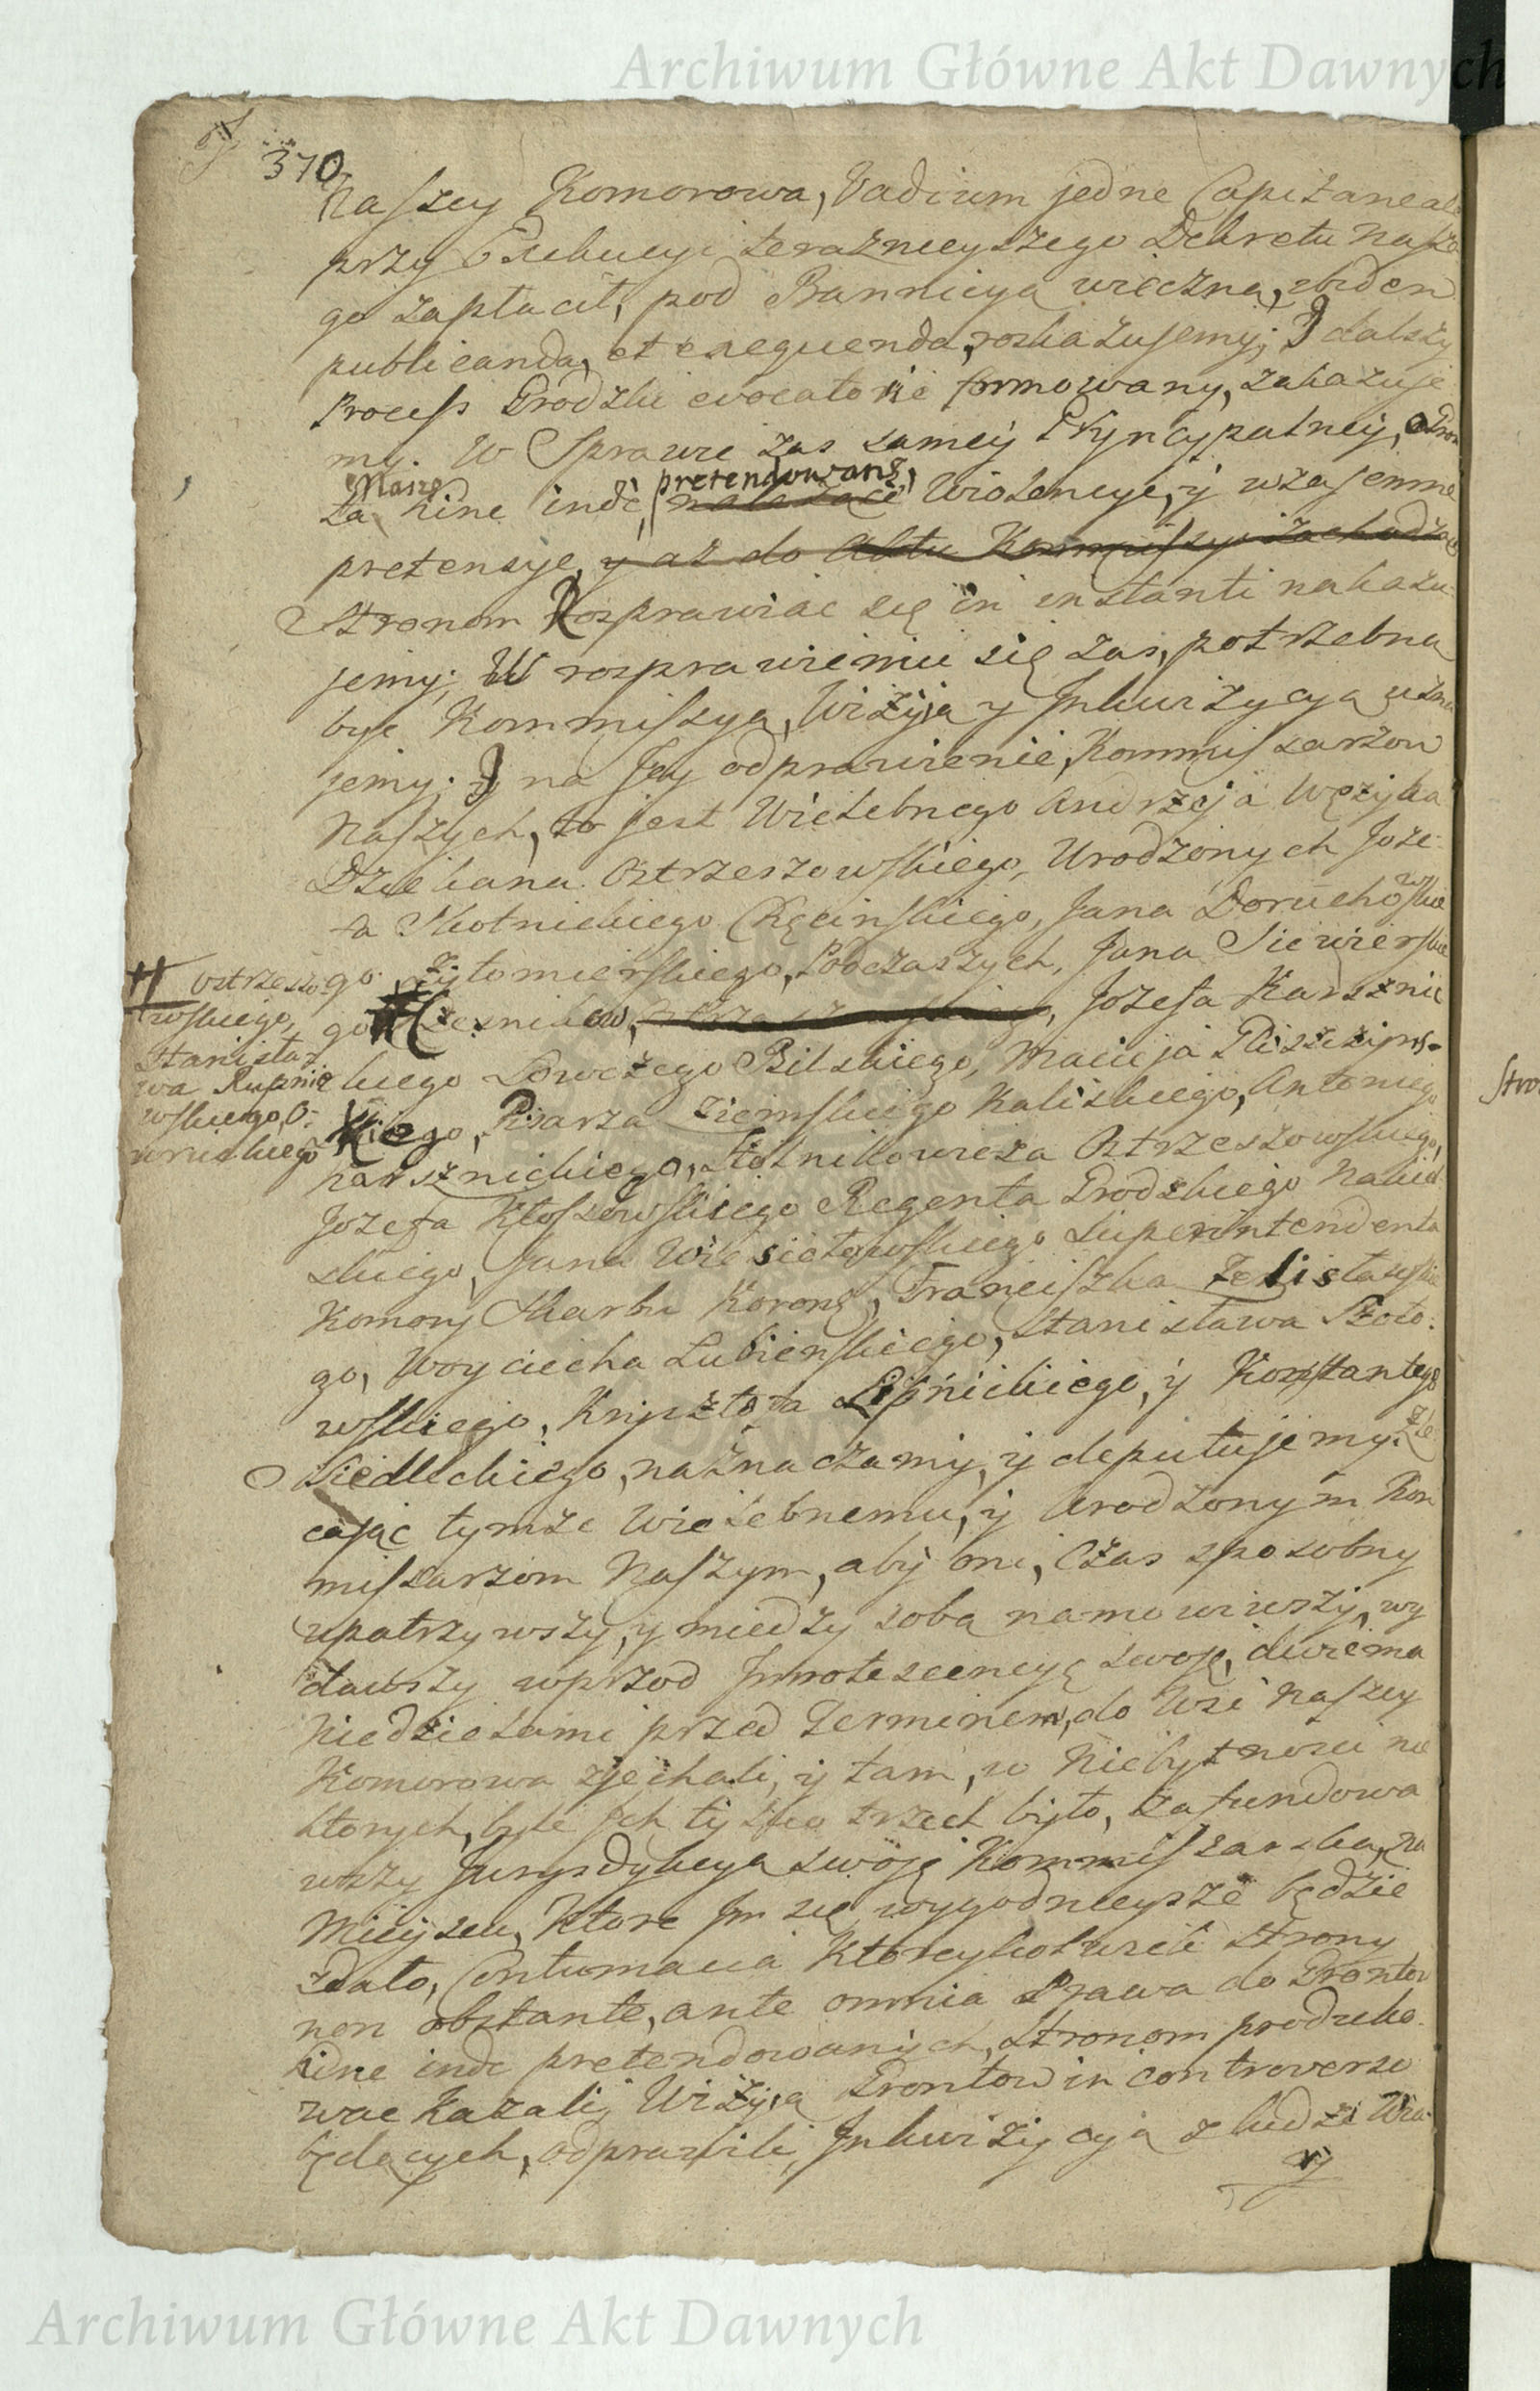 Archiwum Główne Akt Dawnych
370
Naszey Komorowa, Vadium jedne Capitaneale
przy Exekucyi teraznieyszego Dekretu Nasze
go zapłacił, pod Bannicyą wieczną, ibidem
publicanda, et exequenda, roskazujemy; I dalszy
Process Grodzki evocatorie formowany, zakazuje
my. W Sprawie zas samey Pryncypalney, o Gron
ta Nasze hinc inde, pretendowane, należące Wiolencye, y wzajemne
pretensye, y az do Aktu Kommissyi zachodzące
Stronom Rosprawiac się in instanti nakazu
jemy; W rozprawieniu się zas, potrzebną
byc Kommissyą, Wizyją y Inkwizycyą uzna
jemy; I na Jey odprawienie, Kommissarzow
Naszych, to jest Wielebnego Andrzeja Wężyka
Dziekana Ostrzeszowskiego, Urodzonych Joze-
fa Skotnickiego Chęcinskiego, Jana Doruchowskie
go Zytomierskiego, Podczaszych, Jana Siewierskie
go Czesnikow, Jozefa Karsznic
# Ostrzeszo-
wskiego,
Stanisła-
wa Rupnie
wskiego O-
wruckiego
kiego Łowczego Bilskiego, Macieja Pliszczyns-
kiego, Pisarza Ziemskiego Kaliskiego, Antoniego
Karsznickiego, Stolnikowicza Ostrzeszowskiego,
Jozefa Kłossowskiego Regenta Grodzkiego Nakiel
skiego, Jana Wiesiołowskiego Superintendenta
Komory Skarbu Koronę, Franciszka Zelisławskie
go, Woyciecha Lubienskiego, Stanisława Szoło-
wskiego, Krysztofa Lipnickiego, y Konstantego
Siedleckiego, naznaczamy, y deputujemy. Zle
cając tymze Wielebnemu, y Urodzonym Kom
missarzom Naszym, aby oni, Czas sposobny
upatrzywszy, y miedzy sobą namowiwszy, wy
dawszy wprzod Innotescencyę swoję, dwiema
Niedzielami przed Terminem, do Wsi Naszey
Komorowa zjechali, y tam, w Niebytnosci nie
ktorych, byle Ich tylko trzech było, zafundowa
wszy Jurysdykcyą swoję Kommissarską, na
Mieyscu, Ktore Im się wygodnieysze będzie
zdało, Contumacia Ktoreykolwiek Strony
non obstante, ante omnia Prawa do Grontow
hinc inde pretendowanych, Stronom produko-
wac kazali, Wizyią Grontow in controverso
będących, odprawili, Inkwizycyą z ludzi Wia-
ry
Archiwum Główne Akt Dawnych